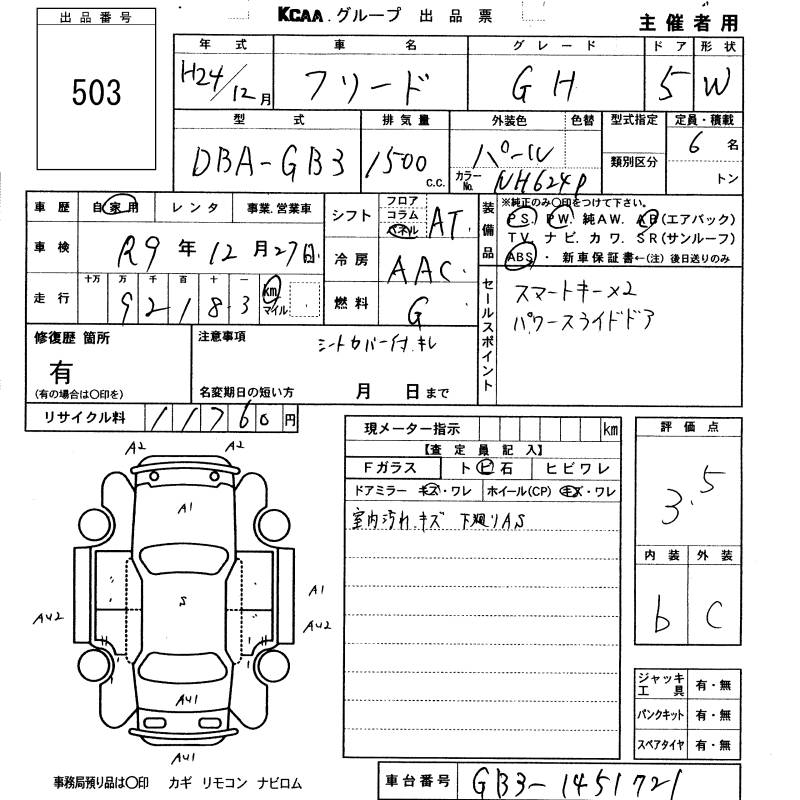 出品番号
503
KCAA.グループ 出品票
主催者用
年式 車名 グレード ドア 形状
H24/12月 フリード GH 5 W
型式 排気量 外装色 色替 型式指定 定員・積載
DBA-GB3 1500 c.c. パール 類別区分 6 名
カラーNo. NH624P トン
車歴 自家用 レンタ 事業.営業車
車検 R9年12月27日
走行 十万 万 千 百 十 一
92183 km マイル
シフト フロア コラム パネル AT
冷房 AAC
燃料 G
装備品 ※純正のみ○印をつけて下さい。
PS. PW. 純AW. AB(エアバック)
TV. ナビ. カワ. SR(サンルーフ)
ABS ・ 新車保証書←(注) 後日送りのみ
セールスポイント
スマートキー×2
パワースライドドア
修復歴 箇所
有
(有の場合は○印を)
注意事項
シートカバー付.キレ
名変期日の短い方 月 日まで
リサイクル料 11760円
現メーター指示 km
【査定員記入】
Fガラス ト ビ 石 ヒビワレ
ドアミラー キズ・ワレ ホイール(CP) キズ・ワレ
室内汚れ.キズ 下廻りAS
評価点
3.5
内装 外装
b C
A2 A2
A1
S
A1
AU2 AU2
AU1
AU1
ジャッキ工具 有・無
パンクキット 有・無
スペアタイヤ 有・無
事務局預り品は○印 カギ リモコン ナビロム
車台番号 GB3-1451721